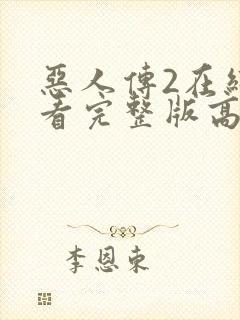 惡人傳2在線
看完整版高
李恩東